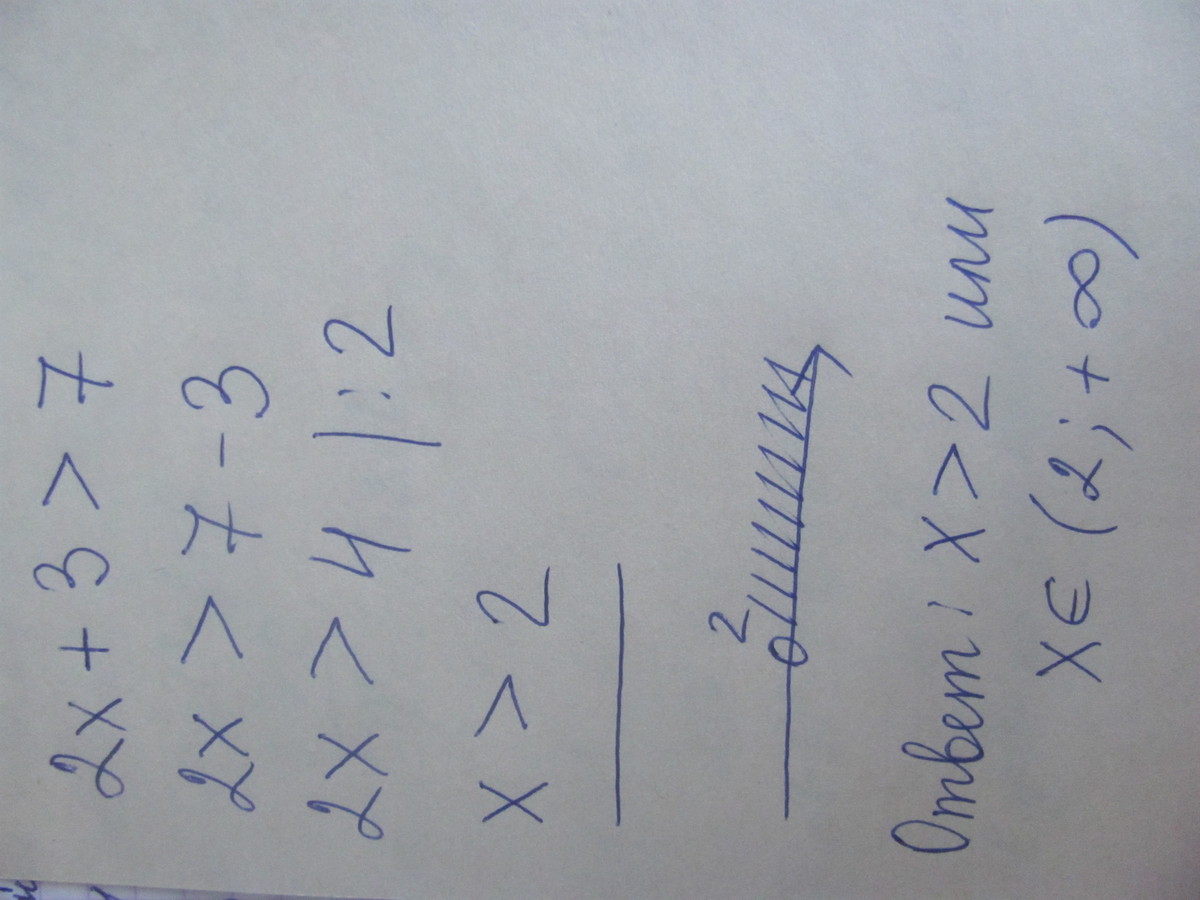 2x + 3 > 7
2x > 7 - 3
2x > 4 | : 2
x > 2
2
Ответ: x > 2 или
x ∈ (2; + ∞)